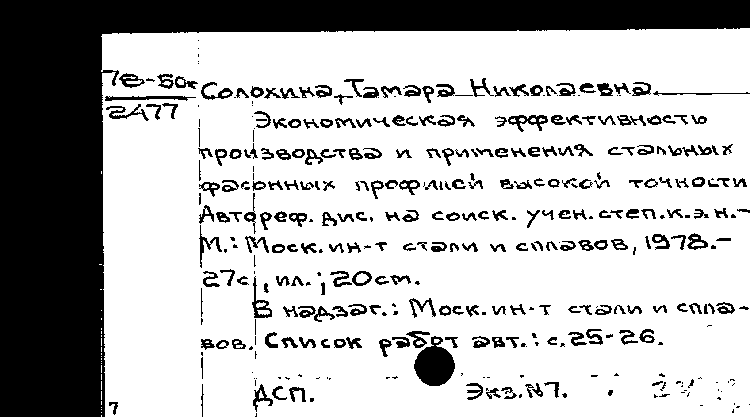 78-50к Солохина, Тамара Николаевна.
2477
Экономическая эффективность
производства и применения стальных
фасонных профилей высокой точности
Автореф. дис. на соиск. учен. степ. к.э.н.-
М.: Моск. ин-т стали и сплавов, 1978.-
27с., ил.; 20см.
В надзаг.: Моск. ин-т стали и спла-
вов. Список работ авт.: с.25-26.
ДСП. Экз.N7.
7